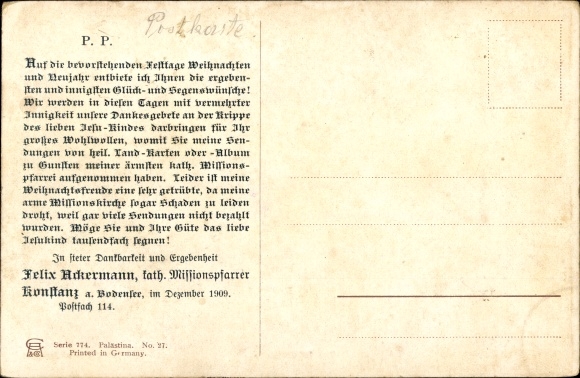 Postkarte.
P. P.
Auf die bevorstehenden Festtage Weihnachten
und Neujahr entbiete ich Ihnen die ergeben-
sten und innigsten Glück- und Segenswünsche!
Wir werden in diesen Tagen mit vermehrter
Innigkeit unsre Dankesgebete an der Krippe
des lieben Jesu-Kindes darbringen für Ihr
großes Wohlwollen, womit Sie meine Sen-
dungen von heil. Land-Karten oder -Album
zu Gunsten meiner ärmsten kath. Missions-
pfarrei aufgenommen haben. Leider ist meine
Weihnachtsfreude eine sehr getrübte, da meine
arme Missionskirche sogar Schaden zu leiden
droht, weil gar viele Sendungen nicht bezahlt
wurden. Möge Sie und Ihre Güte das liebe
Jesukind tausendfach segnen!
In steter Dankbarkeit und Ergebenheit
Felix Ackermann, kath. Missionspfarrer
Konstanz a. Bodensee, im Dezember 1909.
Postfach 114.
Serie 774. Palästina. No. 27.
Printed in Germany.